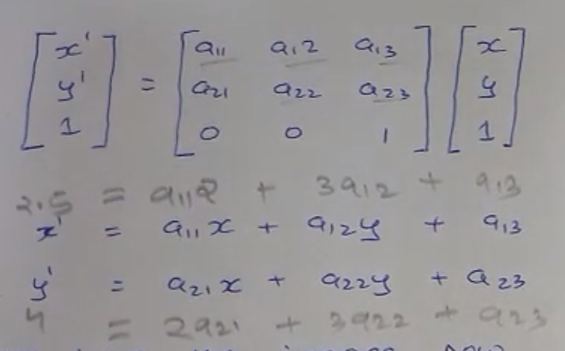 [x'] = [a11 a12 a13] [x]
[y'] = [a21 a22 a23] [y]
[1] = [0 0 1] [1]
2.5 = a11 2 + 3a12 + a13
x' = a11x + a12y + a13
y' = a21x + a22y + a23
4 = 2a21 + 3a22 + a23